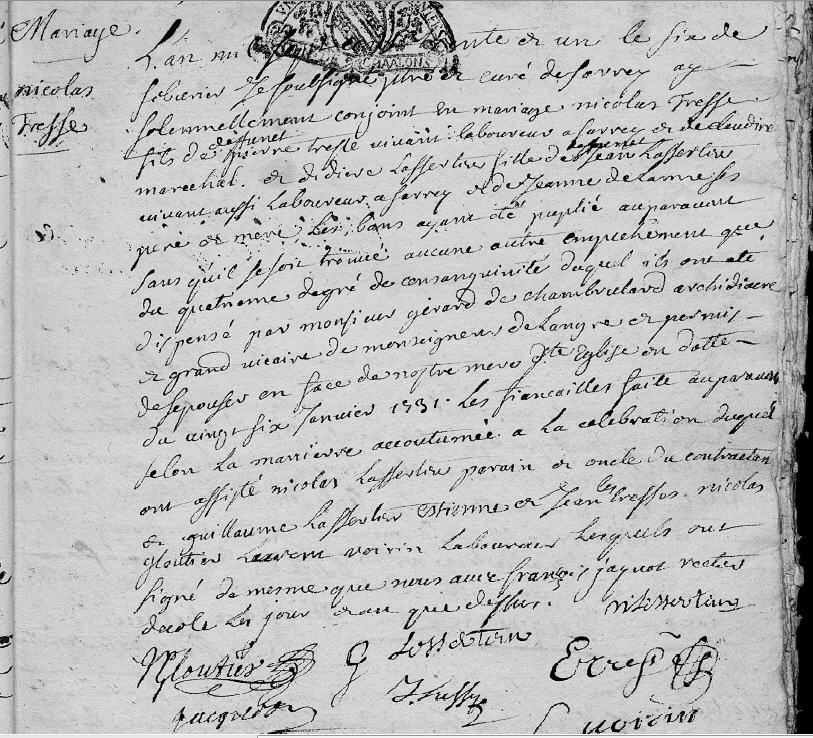 Mariage.
nicolas
Tresse
L'an mil                    ente et un le six de
febvrier Je soussigné pretre et curé de sarrey ay
solemnellement conjoint en mariage nicolas Tresse
fils de deffunct pierre tresse vivant laboureur a sarrey et de claudine
marechal. et didiere Lasserteu fille de deffunct Jean Lasserteu
vivant aussi Laboureur a sarrey et de Jeanne de Lanne ses
pere et mere Les bans ayant été puplié auparavant
sans qu'il se soit trouué aucune autre empechement que
du quatrieme degré de consanguinité duquel ils ont eté
dispensé par monsieur gerard de chambrulard archidiacre
et grand vicaire de monseigneur de Langre et permis
de sepouser en face de nostre mere ste Eglise en datte
du vingt six Janvier 1731. Les fiancailles faite auparavant
selon La manierre accoutumée a La celebration duquel
ont assisté nicolas Lasserteu parain et oncle du contractan
et guillaume Lasserteu estienne et Jean les tresses. nicolas
ploutier Laurent voirin Laboureur Lesquels ont
signé de mesme que nous avec françois jaquot recteur
decole les jour et an que dessus. n Lesserteur
N ploutier G Lesserteur E tresse
jacquot J tresse
L voirin
CHAALONS